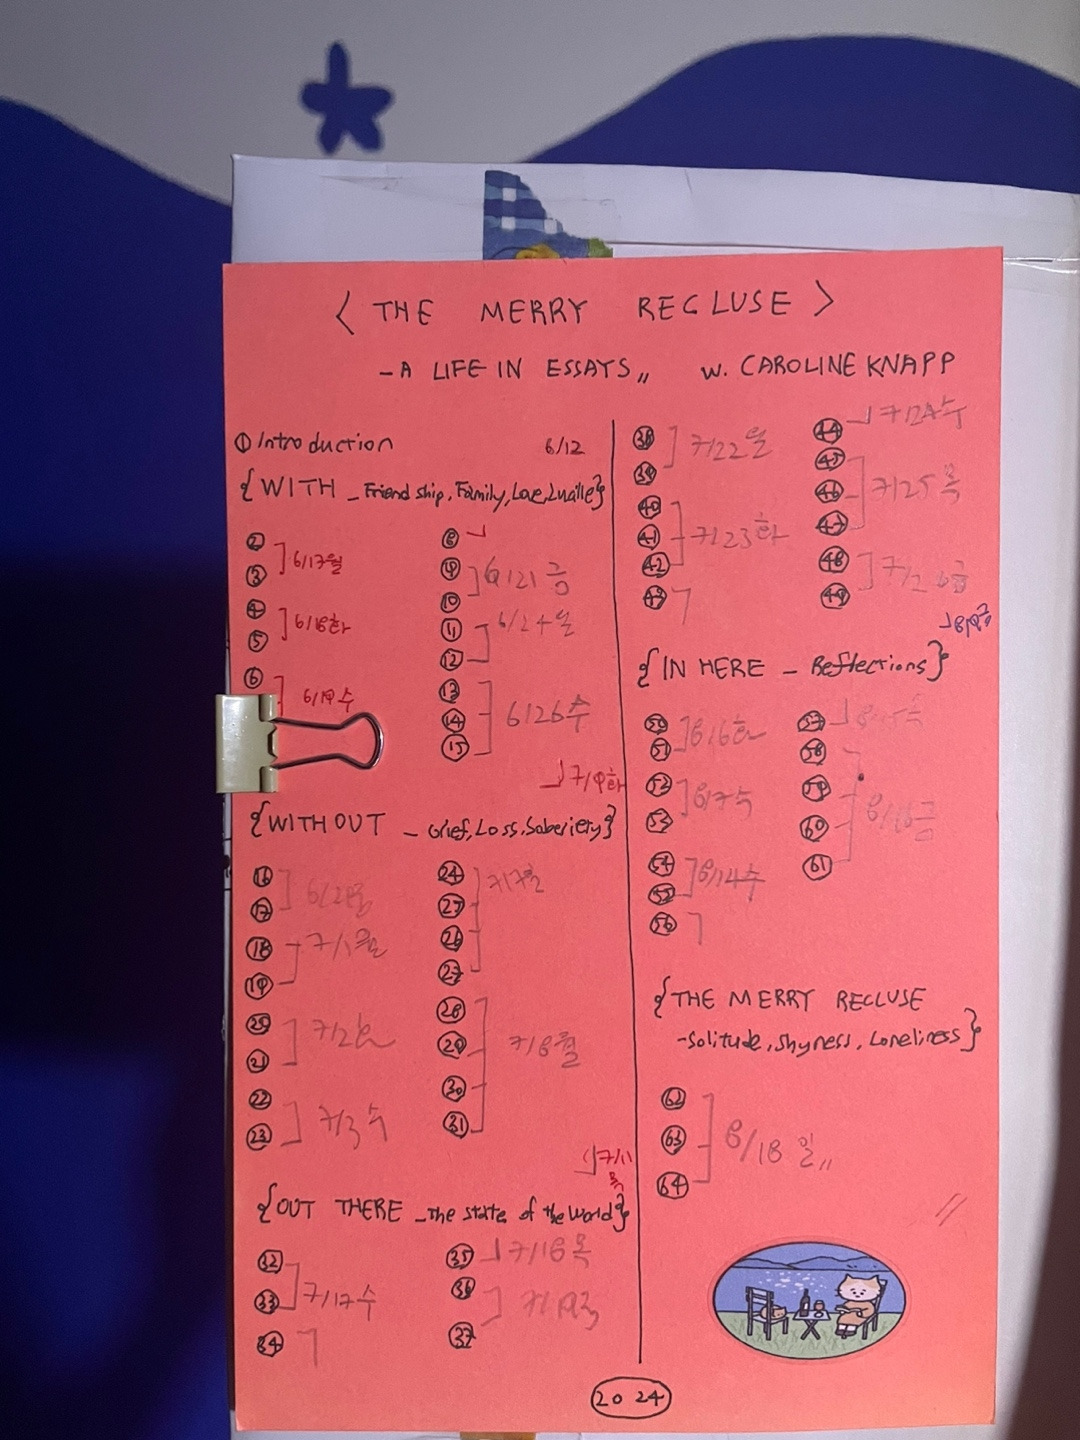 < THE MERRY RECLUSE >
- A LIFE IN ESSAYS,, W. CAROLINE KNAPP
① Introduction 6/12
{WITH _ Friend ship, Family, Love
② ③ 6/17월
④ ⑤ 6/18화
⑥ 6/19수
⑧
⑨ ⑩ 6/21 금
⑪ ⑫ 6/24 월
⑬ ⑭ ⑮ 6/26 수
7/9화
{WITHOUT _ Grief, Loss, Soberiety}
⑯ ⑰
⑱ ⑲ 7/1월
㉑ 7/2화
㉒ ㉓ 7/3 수
㉔ ㉖ ㉗
㉘ ㉙ ㉚ ㉛ 7/8월
7/11
목
{OUT THERE _ the state of the World}
㉜ ㉝ 7/17수
㉞
㉟ 7/18 목
㊱ ㊲
㊳ ㊴ 7/22 월
㊵ ㊶ ㊷ 7/23화
㊸
㊹ 7/24수
㊺ ㊻ ㊼ 7/25 목
㊽ ㊾ 7/26금
{IN HERE _ Reflections}
50 51 8/6화
52 53 8/7수
54 55 8/14수
56
57
58 59 60 61 8/16금
{THE MERRY RECLUSE
-Solitude, Shyness, Loneliness}
62 63 64 8/18 일,,
2024